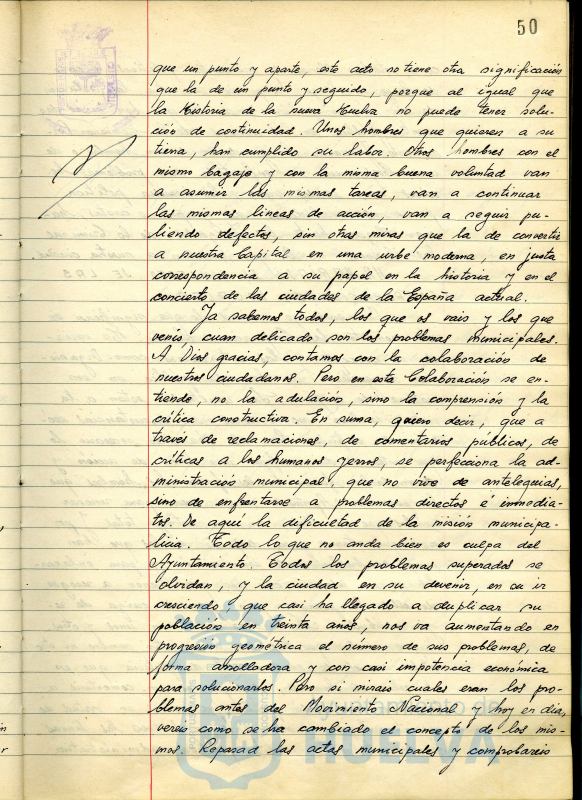 50
que un punto y aparte, este acto no tiene otra significación
que la de un punto y seguido, porque al igual que
la Historia de la nueva Huelva no puede tener solu-
ción de continuidad. Unos hombres que quieren a su
tierra, han cumplido su labor. Otros hombres con el
mismo bagaje y con la misma buena voluntad van
a asumir las mismas tareas, van a continuar
las mismas lineas de acción, van a seguir pu-
liendo defectos, sin otras miras que la de convertir
a nuestra Capital en una urbe moderna, en justa
correspondencia a su papel en la historia y en el
concierto de las ciudades de la España actual.
Ya sabemos todos, los que os vais y los que
venis, cuan delicado son los problemas municipales.
A Dios gracias, contamos con la colaboración de
nuestros ciudadanos. Pero en esta Colaboración se en-
tiende, no la adulación, sino la comprensión y la
crítica constructiva. En suma, quiero decir, que a
través de reclamaciones, de comentarios publicos, de
críticas a los humanos yerros, se perfecciona la ad-
ministración municipal, que no vive de antelequias,
sino de enfrentarse a problemas directos é inmedia-
tos. De aqui la dificultad de la misión municipa-
licia. Todo lo que no anda bien es culpa del
Ayuntamiento. Todos los problemas superados se
olvidan, y la ciudad en su devenir, en su ir
creciendo, que casi ha llegado a duplicar su
población en treinta años, nos va aumentando en
progresión geométrica el número de sus problemas, de
forma arrolladora y con casi impotencia económica
para solucionarlos. Pero si mirais cuales eran los pro-
blemas antes del Movimiento Nacional y hoy en dia,
vereis como se ha cambiado el concepto de los mis-
mos. Repasad las actas municipales y comprobareis
HUELVA